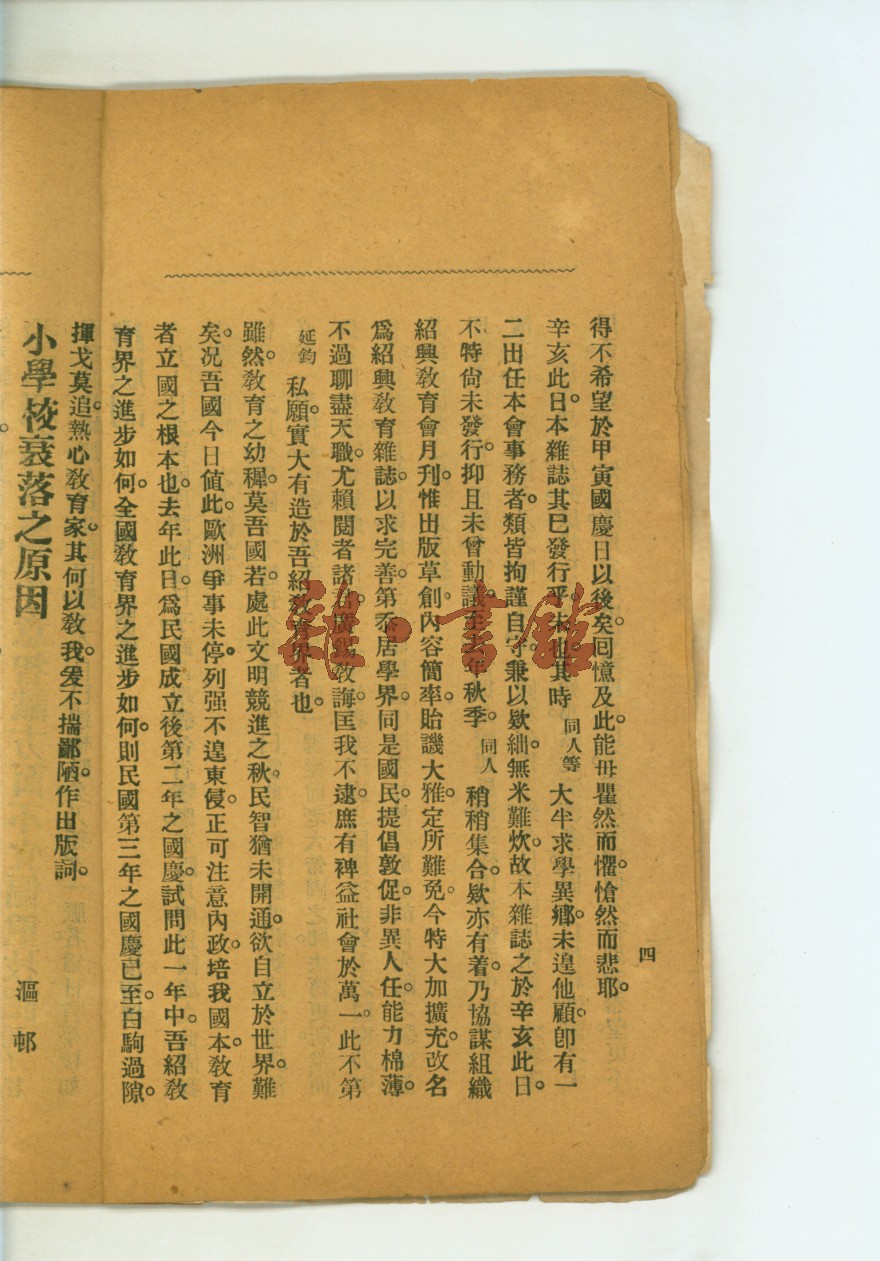 四
得不希望於甲寅國慶日以後矣。囘憶及此。能毋瞿然而懼。愴然而悲耶。
辛亥此日。本雜誌其已發行乎。未也。其時。同人等大半求學異鄉。未遑他顧。卽有一
二出任本會事務者。類皆拘謹自守。兼以欵絀。無米難炊。故本雜誌之於辛亥此日。
不特尙未發行。抑且未曾動議。至去年秋季。同人稍稍集合。欵亦有着。乃協謀組織
紹興敎育會月刊。惟出版草創。內容簡率。貽譏大雅。定所難免。今特大加擴充。改名
爲紹興敎育雜誌。以求完善。第忝居學界。同是國民。提倡敦促。非異人任。能力棉薄。
不過聊盡天職。尤賴閱者諸君。廣錫敎誨。匡我不逮。庶有裨益社會於萬一。此不第
延鈞私願。實大有造於吾紹敎育界者也。
雖然。敎育之幼穉。莫吾國若。處此文明競進之秋。民智猶未開通。欲自立於世界。難
矣。况吾國今日値此。歐洲爭事未停。列强不遑東侵。正可注意內政。培我國本。敎育
者立國之根本也。去年此日。爲民國成立後第二年之國慶。試問此一年中。吾紹敎
育界之進步如何。全國敎育界之進步如何。則民國第三年之國慶已至。白駒過隙。
揮戈莫追。熱心敎育家。其何以敎我。爰不揣鄙陋。作出版詞。
小學校衰落之原因
漚邨
雜·書館